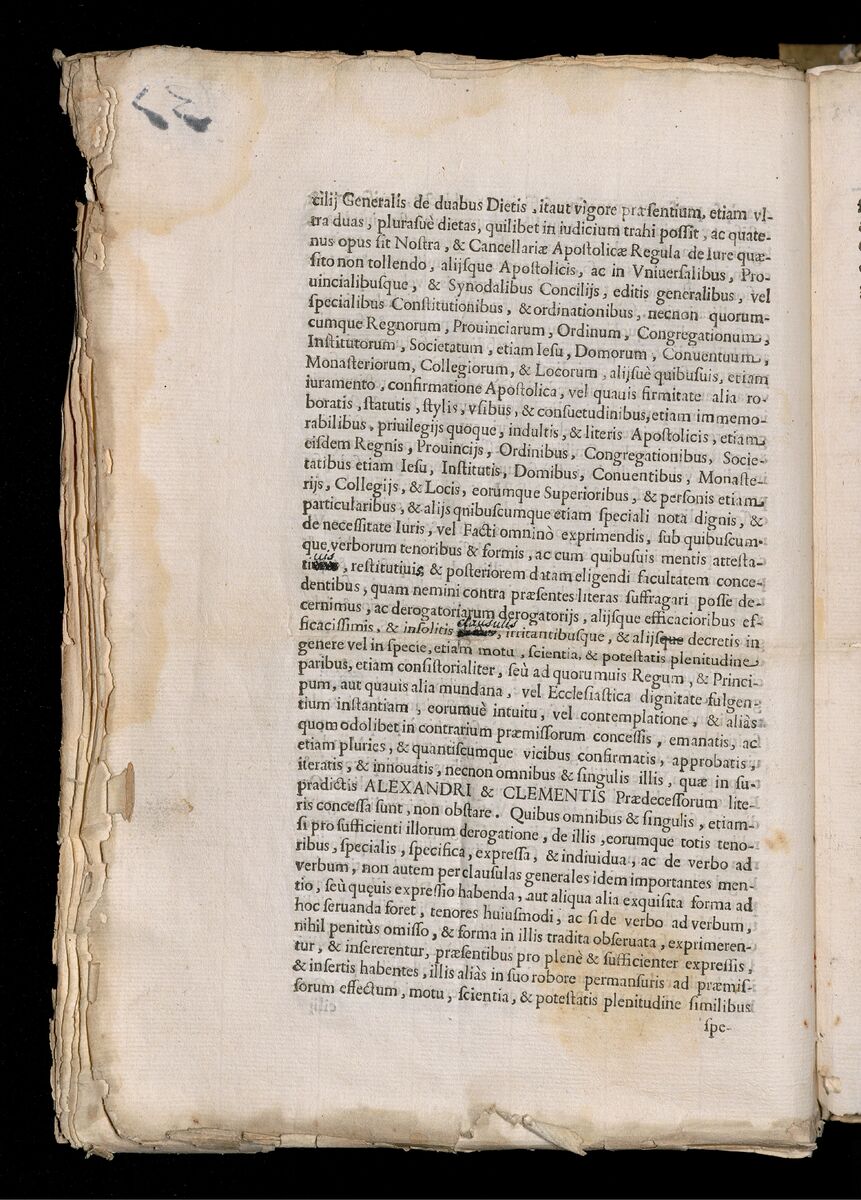 cilij Generalis de duabus Dietis, itaut vigore præsentium, etiam vl-
tra duas, plurasuè dietas, quilibet in iudicium trahi possit, ac quate-
nus opus sit Nostra, & Cancellariæ Apostolicæ Regula de Iure quæ-
sito non tollendo, alijsque Apostolicis, ac in Vniuersalibus, Pro-
uincialibusque, & Synodalibus Concilijs, editis generalibus, vel
specialibus Constitutionibus, & ordinationibus, necnon quorum-
cumque Regnorum, Prouinciarum, Ordinum, Congregationum,
Institutorum, Societatum, etiam Iesu, Domorum, Conuentuum,
Monasteriorum, Collegiorum, & Locorum, alijsuè quibusuis, etiam
iuramento, confirmatione Apostolica, vel quauis firmitate alia ro-
boratis, statutis, stylis, vsibus, & consuetudinibus, etiam immemo-
rabilibus, priuilegijs quoque, indultis, & literis Apostolicis, etiam
eisdem Regnis, Prouincijs, Ordinibus, Congregationibus, Socie-
tatibus etiam Iesu, Institutis, Domibus, Conuentibus, Monaste-
rijs, Collegijs, & Locis, eorumque Superioribus, & personis etiam
particularibus, & alijs qnibuscumque etiam speciali nota dignis, &
de necessitate Iuris, vel Facti omninò exprimendis, sub quibuscum-
que verborum tenoribus & formis, ac cum quibusuis mentis attesta-
tiuis, restitutiuis & posteriorem datam eligendi facultatem conce-
dentibus, quam nemini contra præsentes literas suffragari posse de-
cernimus, ac derogatoriarum derogatorijs, alijsque efficacioribus ef-
ficacissimis, & insolitis clausulis, irritantibusque, & alijsque decretis in
genere vel in specie, etiam motu, scientia, & potestatis plenitudine
paribus, etiam consistorialiter, seù ad quorumuis Regum, & Princi-
pum, aut quauis alia mundana, vel Ecclesiastica dignitate fulgen-
tium instantiam, eorumuè intuitu, vel contemplatione, & aliàs
quomodolibet in contrarium præmissorum concessis, emanatis, ac
etiam pluries, & quantiscumque vicibus confirmatis, approbatis,
iteratis, & innouatis, necnon omnibus & singulis illis, quæ in su-
pradictis ALEXANDRI & CLEMENTIS Prædecessorum lite-
ris concessa sunt, non obstare. Quibus omnibus & singulis, etiam-
si pro sufficienti illorum derogatione, de illis, eorumque totis teno-
ribus, specialis, specifica, expressa, & indiuidua, ac de verbo ad
verbum, non autem per clausulas generales idem importantes men-
tio, seù quęuis expressio habenda, aut aliqua alia exquisita forma ad
hoc seruanda foret, tenores huiusmodi, ac si de verbo ad verbum,
nihil penitùs omisso, & forma in illis tradita obseruata, exprimeren-
tur, & insererentur, præsentibus pro plenè & sufficienter expressis,
& insertis habentes, illis aliàs in suo robore permansuris ad præmis-
sorum effectum, motu, scientia, & potestatis plenitudine similibus
spe-